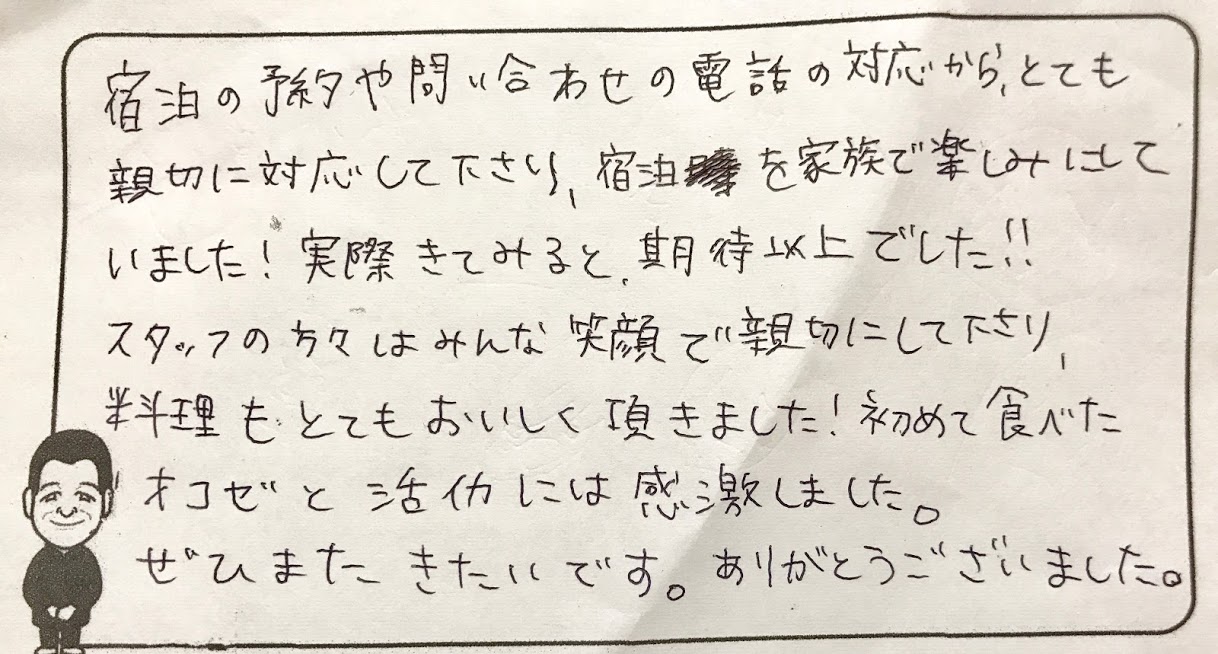 宿泊の予約や問い合わせの電話の対応から、とても
親切に対応して下さり、宿泊を家族で楽しみにして
いました！実際きてみると、期待以上でした!!
スタッフの方々はみんな笑顔で親切にして下さり、
料理もとてもおいしく頂きました！初めて食べた
オコゼと活イカには感激しました。
ぜひまたきたいです。ありがとうございました。